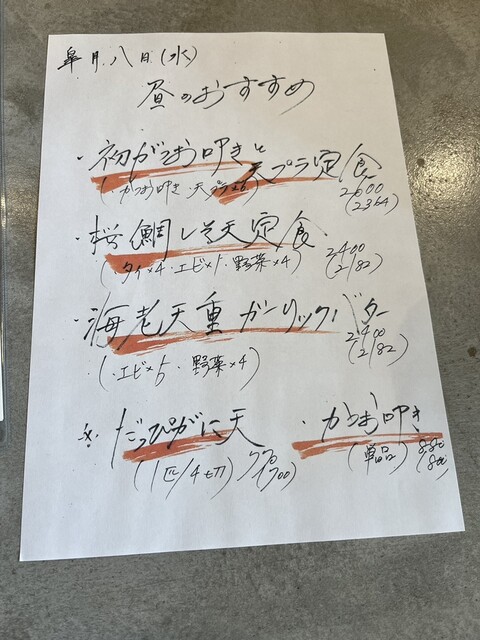 皐月八日(水)
昼のおすすめ
・初がつお叩きと天プラ定食
(・かつお叩き・天プラ×6) 2600
(2364)
・桜鯛しそ天定食
(・タイ×4・エビ×1・野菜×4) 2400
(2182)
・海老天重ガーリックバター
(・エビ×5・野菜×4) 2400
(2182)
※だっぴがに天 ・かつお叩き
(1匹/4切) 770 (単品) 880
(700) (800)